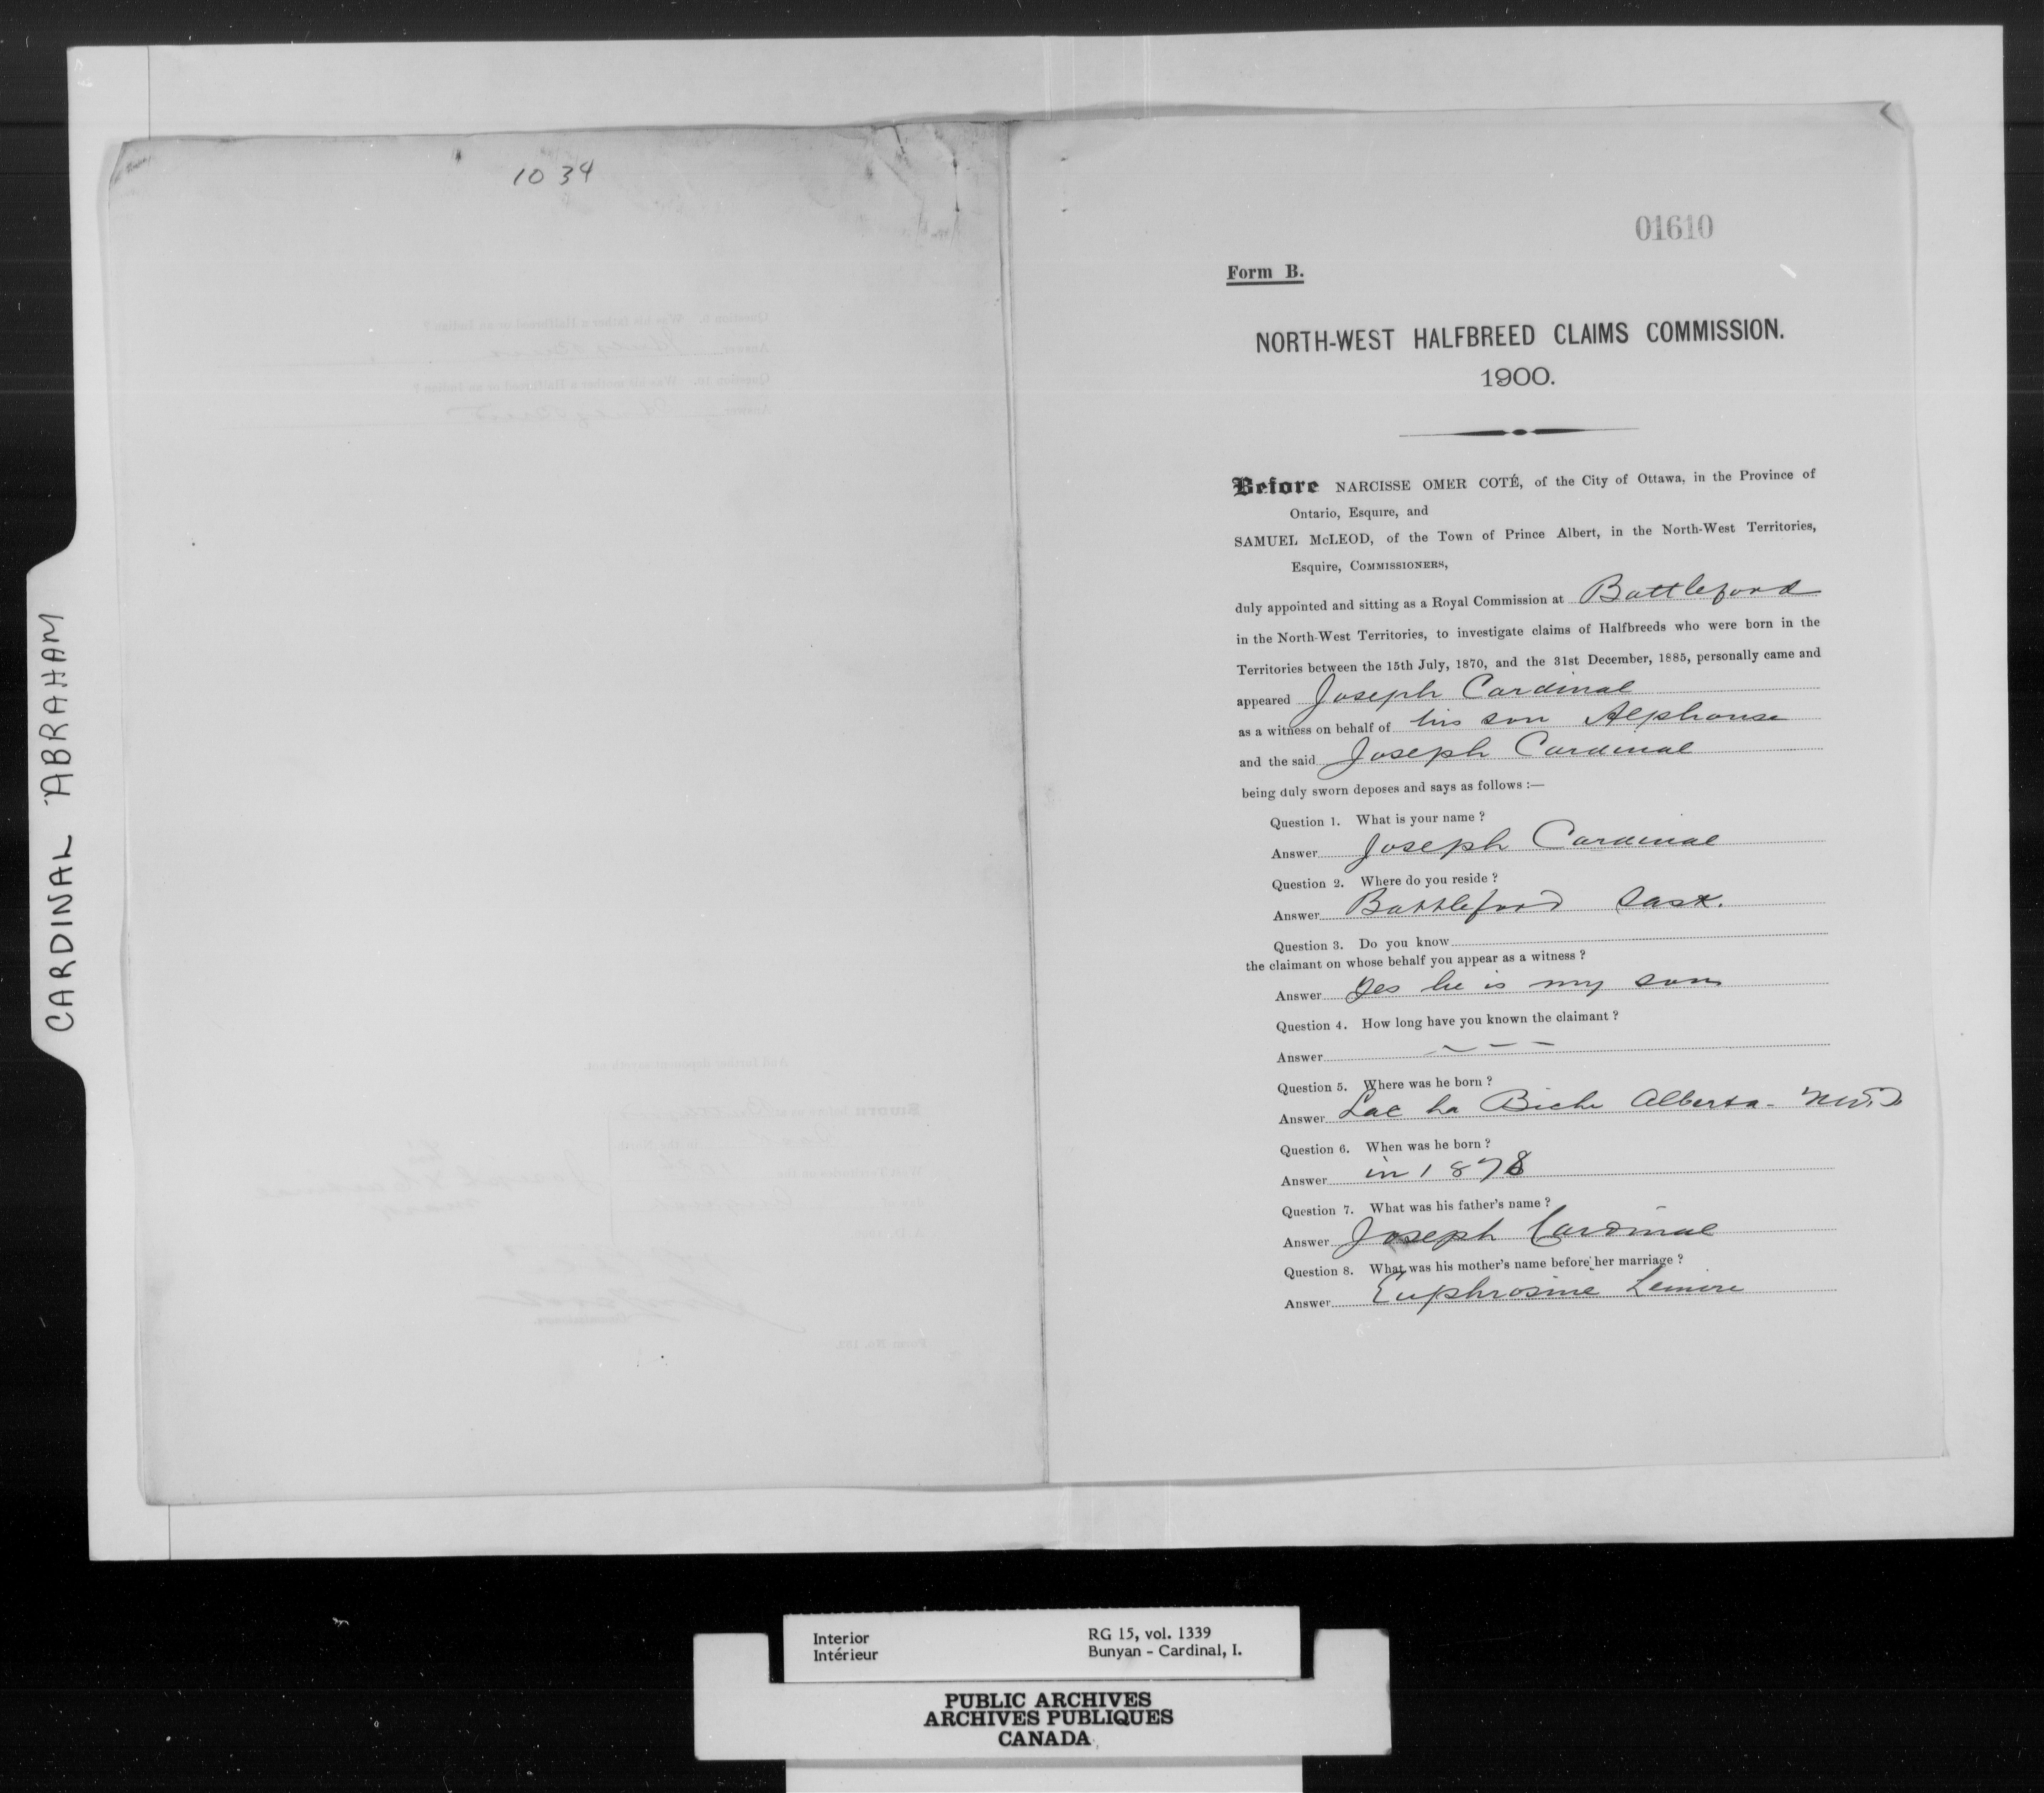 CARDINAL ABRAHAM
1034
01610
Form B.
NORTH-WEST HALFBREED CLAIMS COMMISSION.
1900.
Before NARCISSE OMER COTÉ, of the City of Ottawa, in the Province of
Ontario, Esquire, and
SAMUEL McLEOD, of the Town of Prince Albert, in the North-West Territories,
Esquire, COMMISSIONERS,
duly appointed and sitting as a Royal Commission at Battleford
in the North-West Territories, to investigate claims of Halfbreeds who were born in the
Territories between the 15th July, 1870, and the 31st December, 1885, personally came and
appeared Joseph Cardinal
as a witness on behalf of his son Alphonse
and the said Joseph Cardinal
being duly sworn deposes and says as follows :—
Question 1. What is your name ?
Answer Joseph Cardinal
Question 2. Where do you reside ?
Answer Battleford Sask.
Question 3. Do you know
the claimant on whose behalf you appear as a witness ?
Answer Yes he is my son
Question 4. How long have you known the claimant ?
Answer — — —
Question 5. Where was he born ?
Answer Lac La Biche Alberta - N.W.T
Question 6. When was he born ?
Answer in 1878
Question 7. What was his father's name ?
Answer Joseph Cardinal
Question 8. What was his mother's name before her marriage ?
Answer Euphrosine
Interior
Intérieur
RG 15, vol. 1339
Bunyan - Cardinal, I.
PUBLIC ARCHIVES
ARCHIVES PUBLIQUES
CANADA